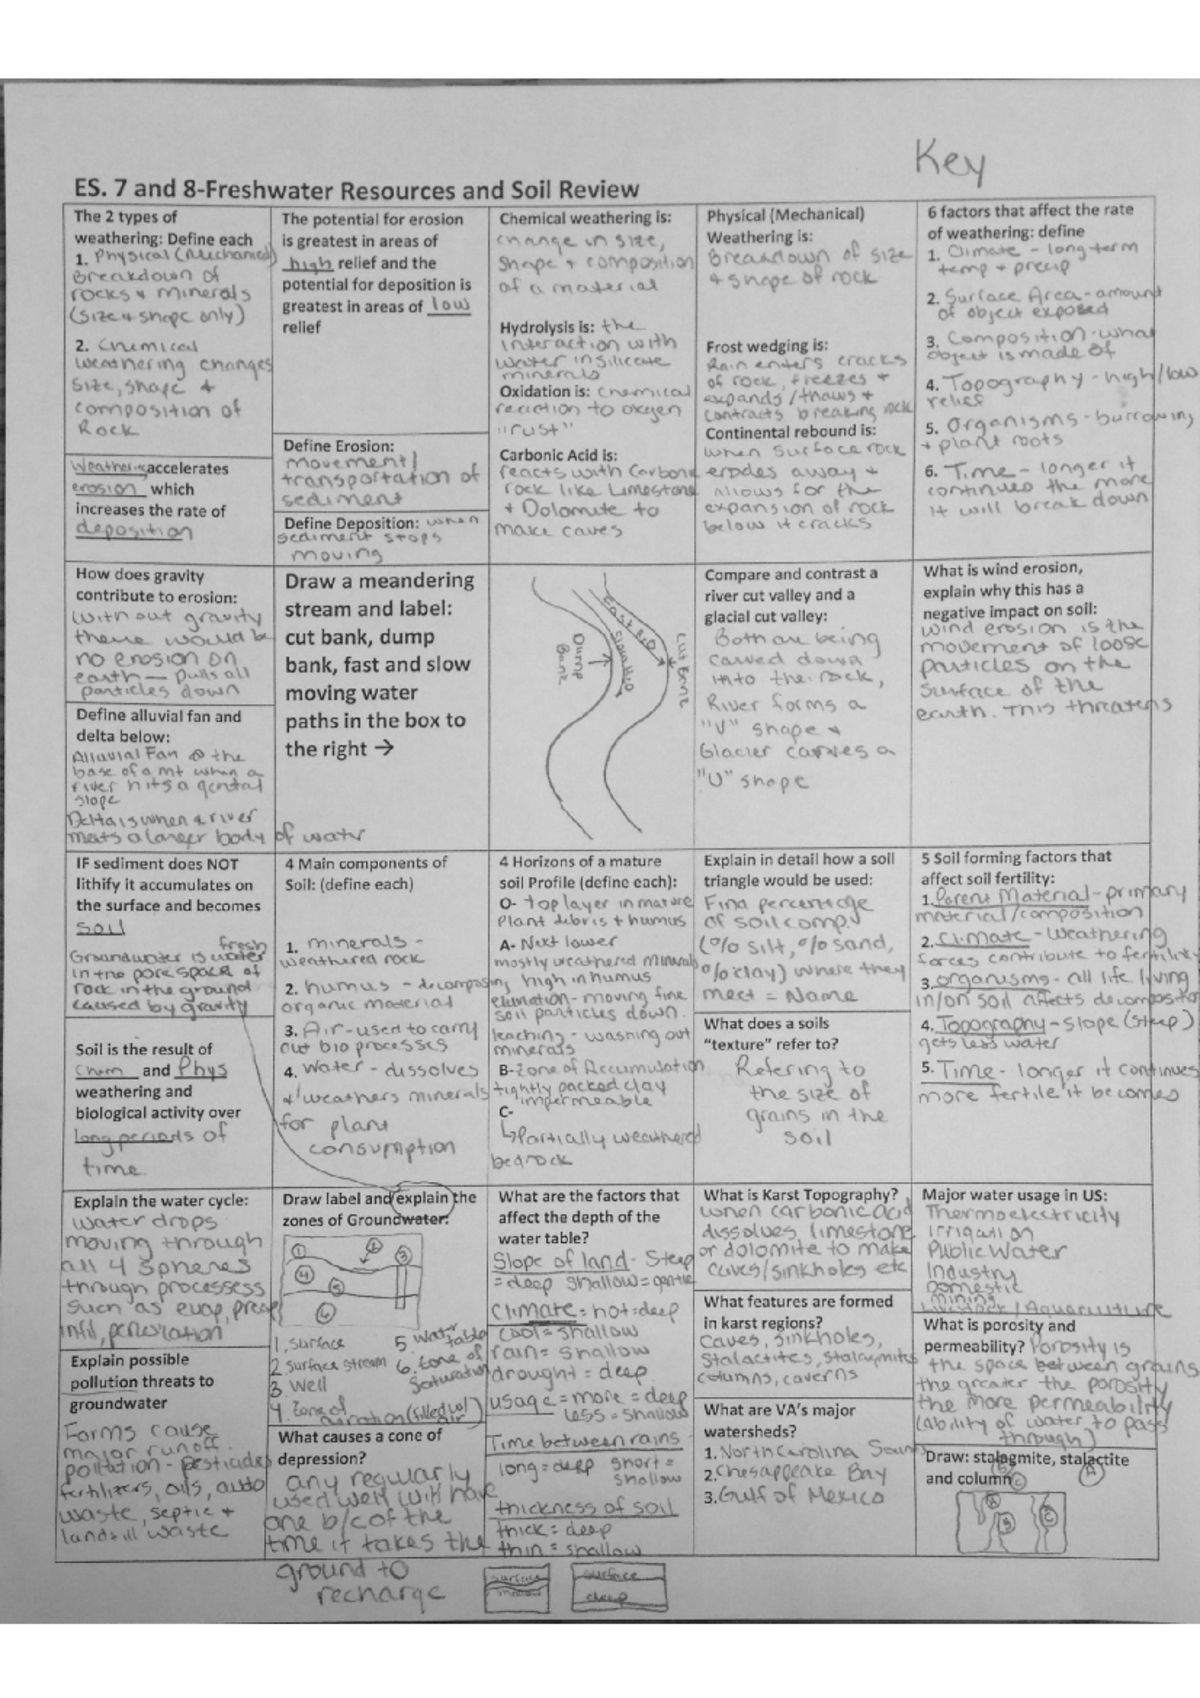 Key
ES. 7 and 8-Freshwater Resources and Soil Review
The 2 types of
weathering: Define each
1. Physical (Mechanical)
Breakdown of
rocks & minerals
(size & shape only)
2. Chemical
weathering changes
size, shape &
composition of
Rock
Weathering accelerates
erosion which
increases the rate of
deposition
The potential for erosion
is greatest in areas of
high relief and the
potential for deposition is
greatest in areas of low
relief
Define Erosion:
movement/
transportation of
sediment
Define Deposition: when
sediment stops
moving
Chemical weathering is:
change in size,
shape + composition
of a material
Hydrolysis is: the
interaction with
water in silicate
minerals
Oxidation is: chemical
reaction to oxygen
"rust"
Carbonic Acid is:
reacts with Carbonic
rock like Limestone
+ Dolomite to
make caves
Physical (Mechanical)
Weathering is:
Breakdown of size
+ shape of rock
Frost wedging is:
Rain enters cracks
of rock, freezes +
expands/thaws +
contracts breaking rock
Continental rebound is:
when surface rock
erodes away +
allows for the
expansion of rock
below it cracks
6 factors that affect the rate
of weathering: define
1. Climate - long term
temp + precip
2. Surface Area - amount
of object exposed
3. Composition - what
object is made of
4. Topography - high/low
relief
5. Organisms - burrowing
+ plant roots
6. Time - longer it
continues the more
it will break down
How does gravity
contribute to erosion:
Without gravity
there would be
no erosion on
earth - pulls all
particles down
Define alluvial fan and
delta below:
Alluvial Fan @ the
base of a mt when a
river hits a gental
slope
Delta is when a river
meets a larger body of water
Draw a meandering
stream and label:
cut bank, dump
bank, fast and slow
moving water
paths in the box to
the right →
Dump
Bank
Slow H2O
Fast H2O
Cut Bank
Compare and contrast a
river cut valley and a
glacial cut valley:
Both are being
carved down
into the rock,
River forms a
"V" shape +
Glacier carves a
"U" shape
What is wind erosion,
explain why this has a
negative impact on soil:
wind erosion is the
movement of loose
particles on the
surface of the
earth. This threatens
IF sediment does NOT
lithify it accumulates on
the surface and becomes
soil
fresh
Groundwater is water
in the pore space of
rock in the ground
caused by gravity
Soil is the result of
Chem and Phys
weathering and
biological activity over
long periods of
time.
4 Main components of
Soil: (define each)
1. minerals -
weathered rock
2. humus - decomposing
organic material
3. Air - used to carry
out bio processes
4. Water - dissolves
+ weathers minerals
for plant
consumption
4 Horizons of a mature
soil Profile (define each):
O- top layer in mature
Plant debris + humus
A- Next lower
mostly weathered minerals
high in humus
eluviation - moving fine
soil particles down.
leaching - washing out
minerals
B- Zone of Accumulation
tightly packed clay
impermeable
C-
↳Partially weathered
bedrock
Explain in detail how a soil
triangle would be used:
Find percentage
of soil comp.
(% silt, % sand,
% clay) where they
meet = Name
What does a soils
"texture" refer to?
Refering to
the size of
grains in the
soil
5 Soil forming factors that
affect soil fertility:
1. Parent Material - primary
material/composition
2. Climate - weathering
forces contribute to fertility
3. organisms - all life living
in/on soil affects
4. Topography - slope (steep)
gets less water
5. Time - longer it continues
more fertile it becomes
Explain the water cycle:
water drops
moving through
all 4 spheres
through processess
such as evap, precip
infil, percolation
Explain possible
pollution threats to
groundwater
Forms cause
major runoff.
pollution - pesticides
fertilizers, oils, auto
waste, septic +
landfill waste
Draw label and explain the
zones of Groundwater:
1
2
3
4
5
6
1. surface
2. surface stream
3. Well
4. Zone of
aeration (filled w/
air)
5. water
table
6. zone of
saturation
What causes a cone of
depression?
any regularly
used well will have
one b/c of the
time it takes the
ground to
recharge
What are the factors that
affect the depth of the
water table?
Slope of land - Steep
= deep shallow = gentle
Climate = hot = deep
cool = shallow
rain = shallow
drought = deep
usage = more = deep
less = shallow
Time between rains
long = deep short =
shallow
thickness of soil
thick = deep
thin = shallow
surface
surface
deep
What is Karst Topography?
when carbonic acid
dissolves limestone
or dolomite to make
caves/sinkholes etc
What features are formed
in karst regions?
Caves, sinkholes,
stalactites, stalagmites
columns, caverns
What are VA's major
watersheds?
1. North Carolina Sound
2. Chesappeake Bay
3. Gulf of Mexico
Major water usage in US:
Thermoelectricity
irrigation
Public Water
Industry
Domestic
mining
Livestock/Aquaculture
What is porosity and
permeability? Porosity is
the space between grains
the greater the porosity
the more permeability
(ability of water to pass
through)
Draw: stalagmite, stalactite
and column
B
A
C
A
B
C